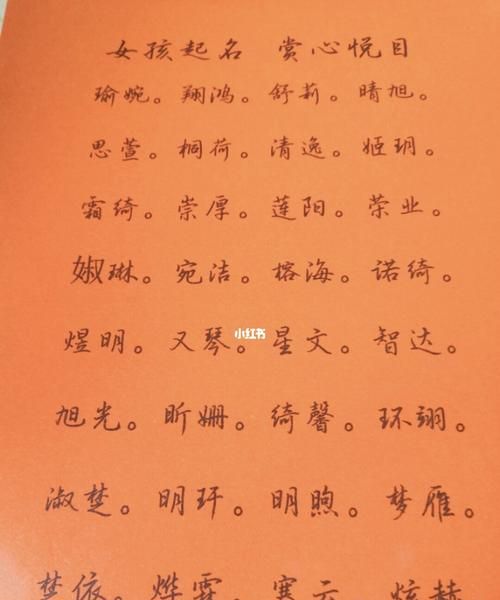 女孩起名 赏心悦目
瑜婉。翔鸿。舒莉。晴旭。
思萱。桐荷。清逸。姬玥。
霜绮。崇厚。莲阳。荣业。
婌琳。宛洁。榕海。诺绮。
煜明。又琴。星文。智达。
小红书
旭光。昕姗。绮馨。环翊。
淑楚。明玕。明煦。梦雁。
梦依。烨霖。寒云 炫赫